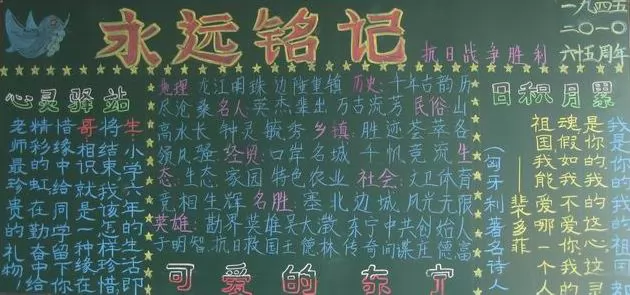 永远铭记
抗日战争胜利
一九四五
二〇一〇
六十五周年
心灵驿站
生
哥
小学六年的生活即
将结束我该怎样珍
惜相识就是一种缘
惜缘中给同学留下你
精彩的虹在勤奋中给
老师最珍贵的礼物!
地理 龙江明珠 边陲重镇 历史: 千年古韵 历
尽沧桑 名人 英杰辈出 万古流芳 民俗: 山
高水长 钟灵毓秀 乡镇: 胜迹荟萃 各
领风骚: 经贸: 口岸名城 千帆竞流 生
态: 生态 家园 特色农业 社会: 文卫体育
竞相生辉 名胜: 塞北边城 风光无限
英雄: 勘界英雄吴大澂 东宁中共创始人
于明智 抗日救国王德林 传奇间谍庄德富
可爱的东宁
日积月累
我是你的,我的祖国
是你的,我的这心这灵
魂假如我不爱你我的
祖国我能爱哪一个人
——裴多菲
(匈牙利著名诗人)